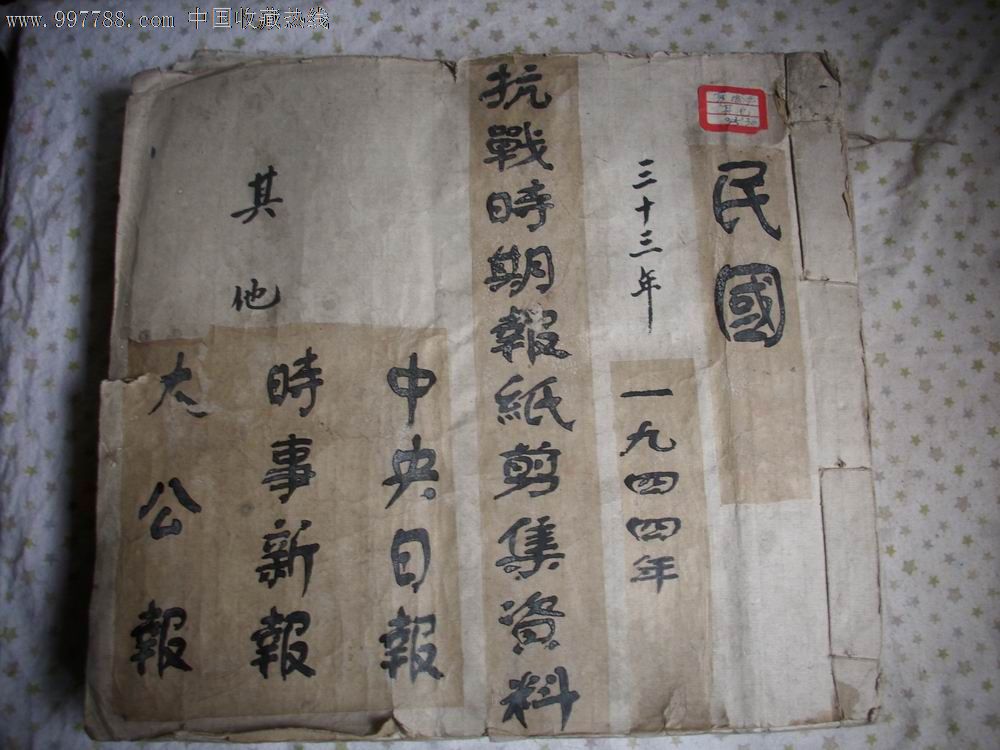 www.997788.com 中国收藏热线
民國
三十三年
一九四四年
抗戰時期報紙剪集資料
中央日報
時事新報
大公報
其他